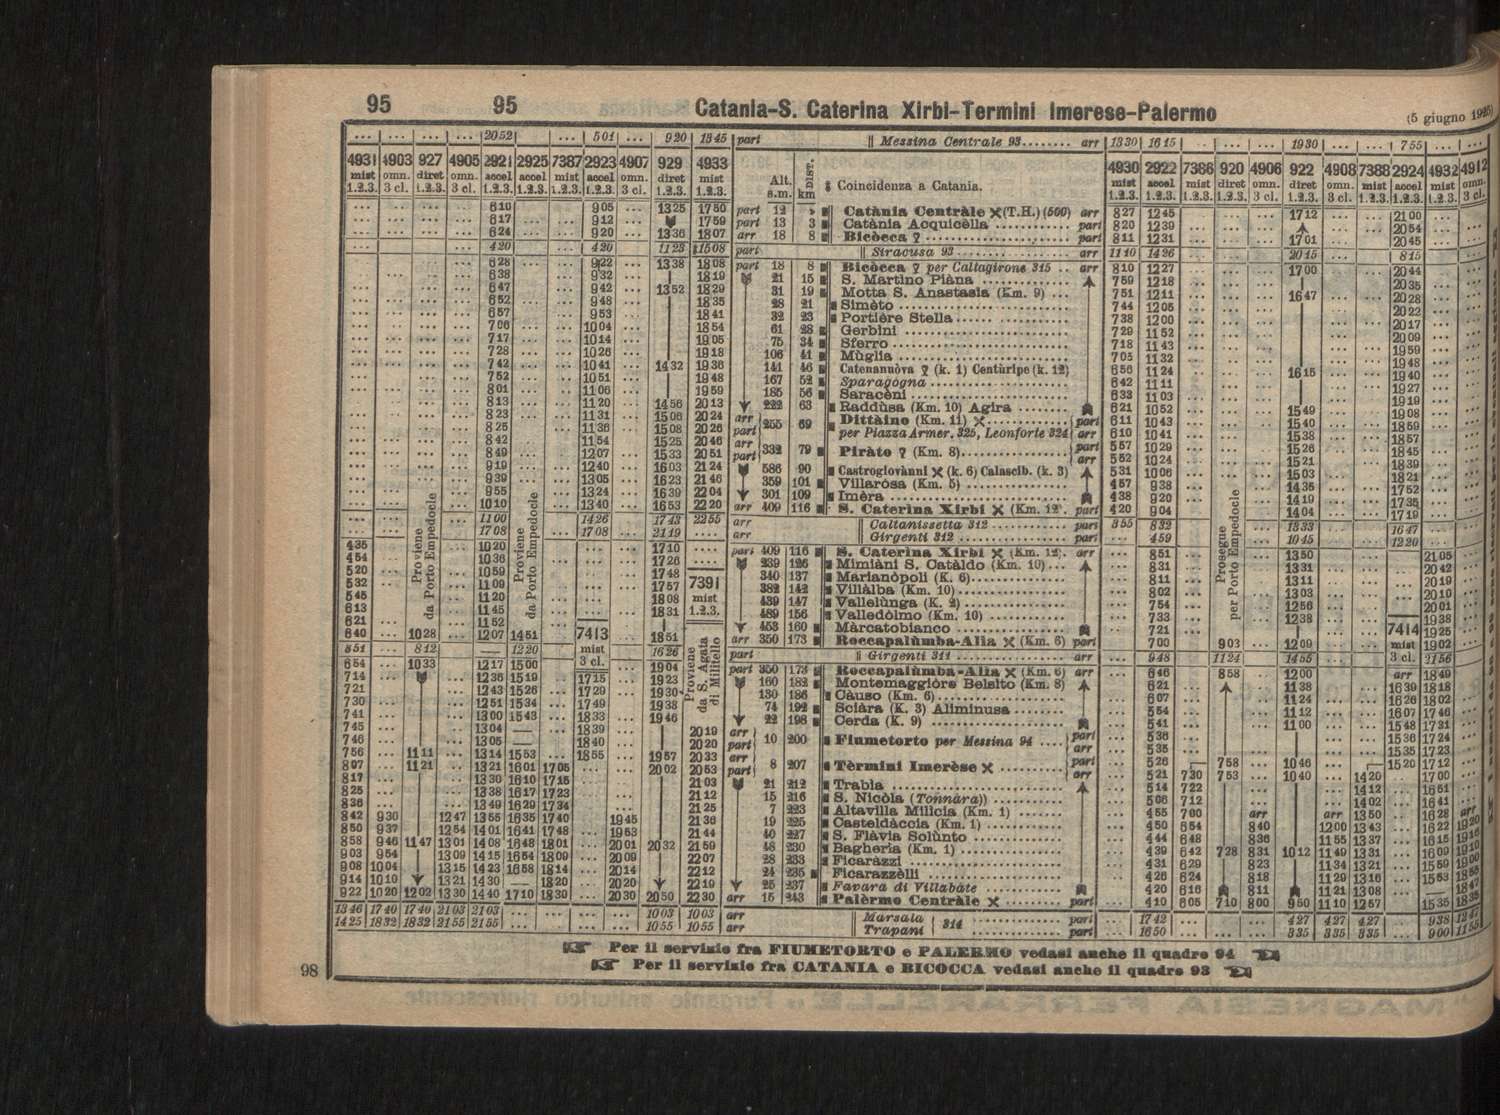 95 95 Catania-S. Caterina Xirbi-Termini Imerese-Palermo (5 giugno
... ... ... ... 2052 ... 501 ... 920 1345 part || Messina Centrale 93 ........ arr 1330 1615 ... ... 1930 ... ... 755 ...
4931 4903 927 4905 2921 2925 7387 2923 4907 929 4933 Alt. s.m. DIST. km Coincidenza a Catania. 4930 2922 7386 920 4906 922 4908 7388 2924 4932 4912
mist omn. diret omn. accel accel mist accel omn. diret mist mist accel mist diret omn. diret omn. mist accel mist omn.
1.2.3. 3 cl. 1.2.3. 3 cl. 1.2.3. 1.2.3. 1.2.3. 1.2.3. 3 cl. 1.2.3. 1.2.3. 1.2.3. 1.2.3. 1.2.3. 1.2.3. 3 cl. 1.2.3. 3 cl. 1.2.3. 1.2.3. 1.2.3. 3 cl.
610 905 1325 1750 part 12 Catània Centràle (T.H.) (500) arr 827 1245 1712 2100
617 912 1759 part 13 3 Catània Acquicèlla ............ part 820 1239 2054
624 920 1336 1807 arr 18 8 Bicòcca ........................ part 811 1231 1701 2045
420 420 1123 1508 part || Siracusa 93 .................. arr 1110 1426 2015 815
628 922 1338 1808 part 18 8 Bicòcca per Caltagirone 315 .. arr 810 1227 1700 2044
638 932 1819 21 15 S. Martino Piàna ............... 759 1218 2035
647 942 1352 1829 31 19 Motta S. Anastasia (Km. 9) ... 751 1211 1647 2028
652 948 1835 28 21 Simèto ........................ 744 1205 2022
657 953 1841 32 23 Portière Stella ................. 738 1200 2017
706 1004 1854 61 28 Gerbini ........................ 729 1152 2009
717 1014 1905 75 34 Sferro ........................ 718 1143 1959
728 1026 1918 106 41 Mùglia ........................ 705 1132 1948
742 1041 1432 1936 141 46 Catenanuòva (k. 1) Centùripe (k. 12) 656 1124 1615 1940
752 1051 1948 167 52 Sparagogna .................... 642 1111 1927
801 1106 1959 185 56 Saracèni ........................ 633 1103 1919
813 1120 1456 2013 222 63 Raddùsa (Km. 10) Agira ........ 621 1052 1549 1908
823 1131 1506 2024 arr 255 69 Dittàino (Km. 11) ............ part 611 1043 1540 1859
825 1136 1508 2026 part per Piazza Armer. 325, Leonforte 324 arr 610 1041 1538 1857
842 1154 1525 2046 arr 332 79 Piràto (Km. 8) ............... part 557 1029 1526 1845
849 1207 1533 2051 part arr 552 1024 1521 1839
919 1240 1603 2124 586 90 Castrogiovànni (k. 6) Calascib. (k. 3) 531 1006 1503 1821
939 1305 1623 2146 359 101 Villaròsa (Km. 5) ............... 457 938 1435 1752
955 1324 1639 2204 301 109 Imèra ........................... 438 920 1419 1735
1010 1340 1653 2220 arr 409 116 S. Caterina Xirbi (Km. 12). part 420 904 1404 1719
1100 1426 1743 2255 arr || Caltanissetta 312 ............ part 355 832 1333 1647
1708 1708 2119 .... arr || Girgenti 312 .................. part 459 1045 1220
435 1020 1710 part 409 116 S. Caterina Xirbi (Km. 12). arr 851 1350 2105
454 1036 1726 239 126 Mimiàni S. Catàldo (Km. 10)... 831 1331 2042
520 1059 1748 7391 340 137 Marianòpoli (K. 6) ............... 811 1311 2019
532 1109 1757 mist 382 142 Villàlba (Km. 10) ............... 802 1303 2010
545 1120 1808 1.2.3. 439 147 Vallelùnga (K. 2) ............... 754 1256 2001
613 1145 1831 489 156 Valledòlmo (Km. 10) ............ 733 1238 1938
621 1152 453 160 Màrcatobianco ............... 721 7414 1925
640 1028 1207 1451 7413 1851 arr 350 173 Roccapalùmba-Alia (Km. 6) part 700 903 1209 mist 1902
Proviene da Porto Empedocle
Proviene da Porto Empedocle
Proviene da S. Agata di Militello
Prosegue per Porto Empedocle
351 812 1220 mist 1626 part || Girgenti 311 .................. arr 948 1124 1455 3 cl. 2156
654 1033 1217 1500 3 cl. 1904 part 350 173 Roccapalùmba-Alia (Km. 6) arr 646 858 1200 arr 1849
714 1236 1519 1715 1923 160 182 Montemaggióre Belsito (Km. 8) 621 1138 1639 1818
721 1243 1526 1729 1930 130 186 Càuso (Km. 6) .................. 607 1124 1626 1802
730 1251 1534 1749 1938 74 192 Sciàra (K. 3) Aliminusa ........ 554 1112 1607 1746
741 1300 1543 1833 1946 22 198 Cerda (K. 9) .................. 541 1100 1548 1731
745 1304 1839 2019 arr 10 200 Fiumetorto per Messina 94 .... part 536 1536 1724
746 1305 1840 2020 part arr 535 1535 1723
756 1111 1314 1553 1855 1957 2033 arr 8 207 Tèrmini Imerèse ............ part 526 758 1046 1520 1712
807 1121 1321 1601 1705 2002 2053 part arr 521 730 753 1040 1420 1700
817 1330 1610 1715 2103 21 212 Trabia ........................ 514 722 1412 1651
825 1338 1617 1723 2112 15 216 S. Nicòla (Tonnàra) ............ 506 712 1402 1641
836 1349 1629 1734 2125 7 223 Altavilla Milicia (Km. 1) ...... 455 700 arr arr 1350 1628 arr
842 930 1247 1355 1635 1740 1945 2136 19 225 Casteldàccia (Km. 1) ............ 450 654 840 1200 1343 1622 1920
850 937 1254 1401 1641 1748 1953 2144 40 227 S. Flàvia Solùnto ............... 444 648 836 1155 1337 1615 1916
858 946 1147 1301 1408 1648 1801 2001 2032 2159 48 230 Bagheria (Km. 1) ............... 439 642 728 831 1012 1149 1331 1609 1910
903 954 1309 1415 1654 1809 2009 2207 28 233 Ficaràzzi ..................... 431 629 823 1134 1321 1559 1900
908 1004 1315 1423 1658 1814 2014 2212 24 235 Ficarazzèlli ..................... 426 624 818 1129 1316 1553 1855
914 1010 1321 1430 1820 2020 2219 25 237 Favara di Villabàte ............ 420 616 811 1121 1308 1847
922 1020 1202 1330 1440 1710 1830 2030 2050 2230 arr 15 243 Palèrmo Centràle ............ part 410 605 710 800 950 1110 1257 1535
1346 1740 1740 2103 2103 1003 1003 arr || Marsala 314 ............ part 1742 427 427 427 938 1247
1425 1832 1832 2155 2155 1055 1055 arr || Trapani ............ part 1650 335 335 335 900 1155
Per il servizio fra FIUMETORTO e PALERMO vedasi anche il quadro 94
Per il servizio fra CATANIA e BICOCCA vedasi anche il quadro 93
98